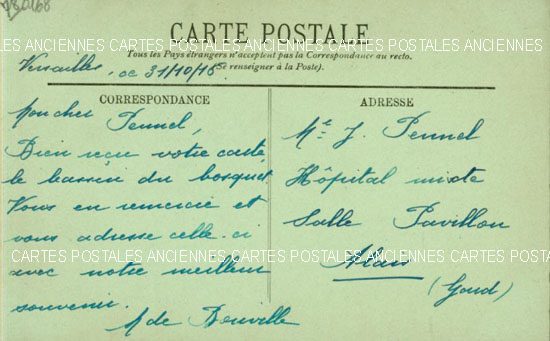 CARTE POSTALE
CARTES POSTALES ANCIENNES CARTES POSTALES ANCIENNES CARTES POSTALES ANCIENNES
Tous les Pays étrangers n'acceptent pas la Correspondance au recto.
(Se renseigner à la Poste).
Versailles, ce 31/10/15
CORRESPONDANCE
Mon cher Pennel,
Bien reçu votre carte,
le bassin du bosquet.
Vous en remercie et
vous adresse celle-ci
avec notre meilleur
souvenir.
A de Bouville
ADRESSE
Mr J. Pennel
Hôpital mixte
Salle Pavillon
Alais
(Gard)
CARTES POSTALES ANCIENNES CARTES POSTALES ANCIENNES CARTES POSTALES ANCIENNES